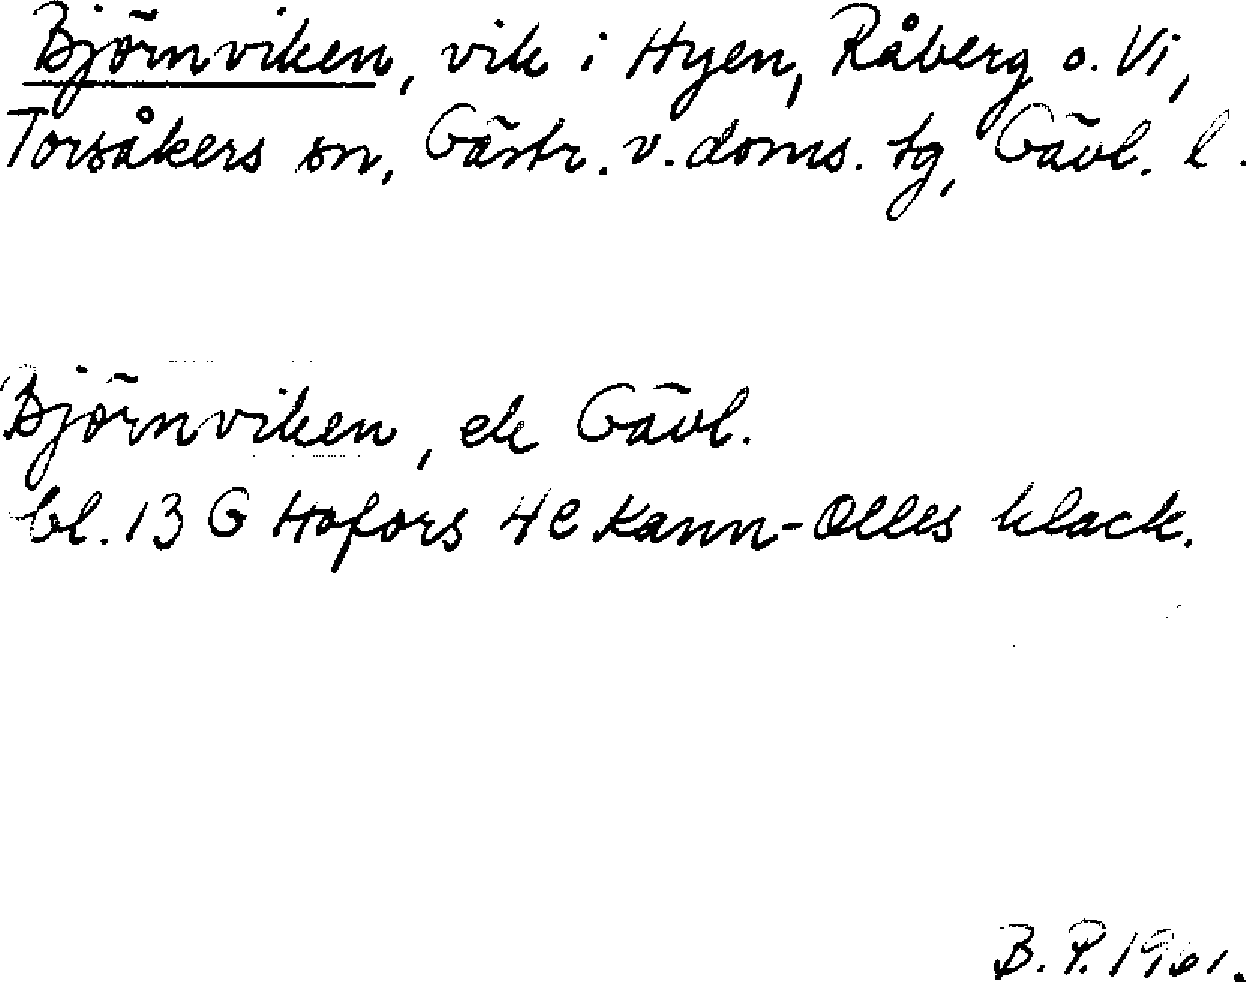 Björnviken, vik i Hyen, Råberg o. Vi,
Torsåkers sn, Gästr. v. doms. tg, Gävl. l.
Björnviken, ek Gävl.
bl. 13 G Hofors 4e Kann-Olles klack.
B. P. 1961.